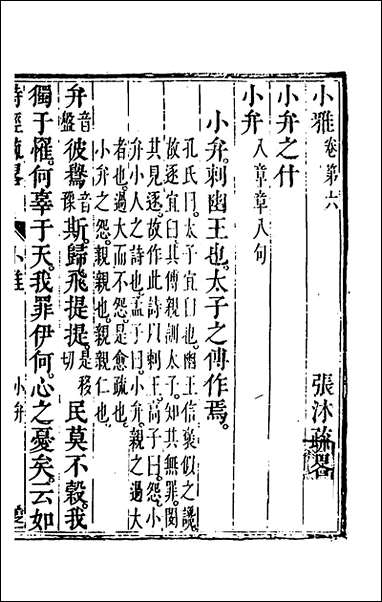 小雅卷第六　張沐疏略
小弁之什
小弁八章章八句
小弁。刺幽王也。太子之傅作焉。
孔氏曰。太子宜臼也。幽王信褒姒之讒。
故逐宜臼。其傅親訓太子。知其無罪。閔
其見逐。故作此詩以刺王。高子曰。怨。小
弁小人之詩也。孟子曰。小弁親之過大
者也。過大而不怨。是愈疏也。
小弁之怨。親親也。親親仁也。
弁音盤彼鸒音豫斯。歸飛提提。是移切民莫不穀。我
獨于罹。何辜于天。我罪伊何。心之憂矣。云如
詩經疏畧　小雅　小弁